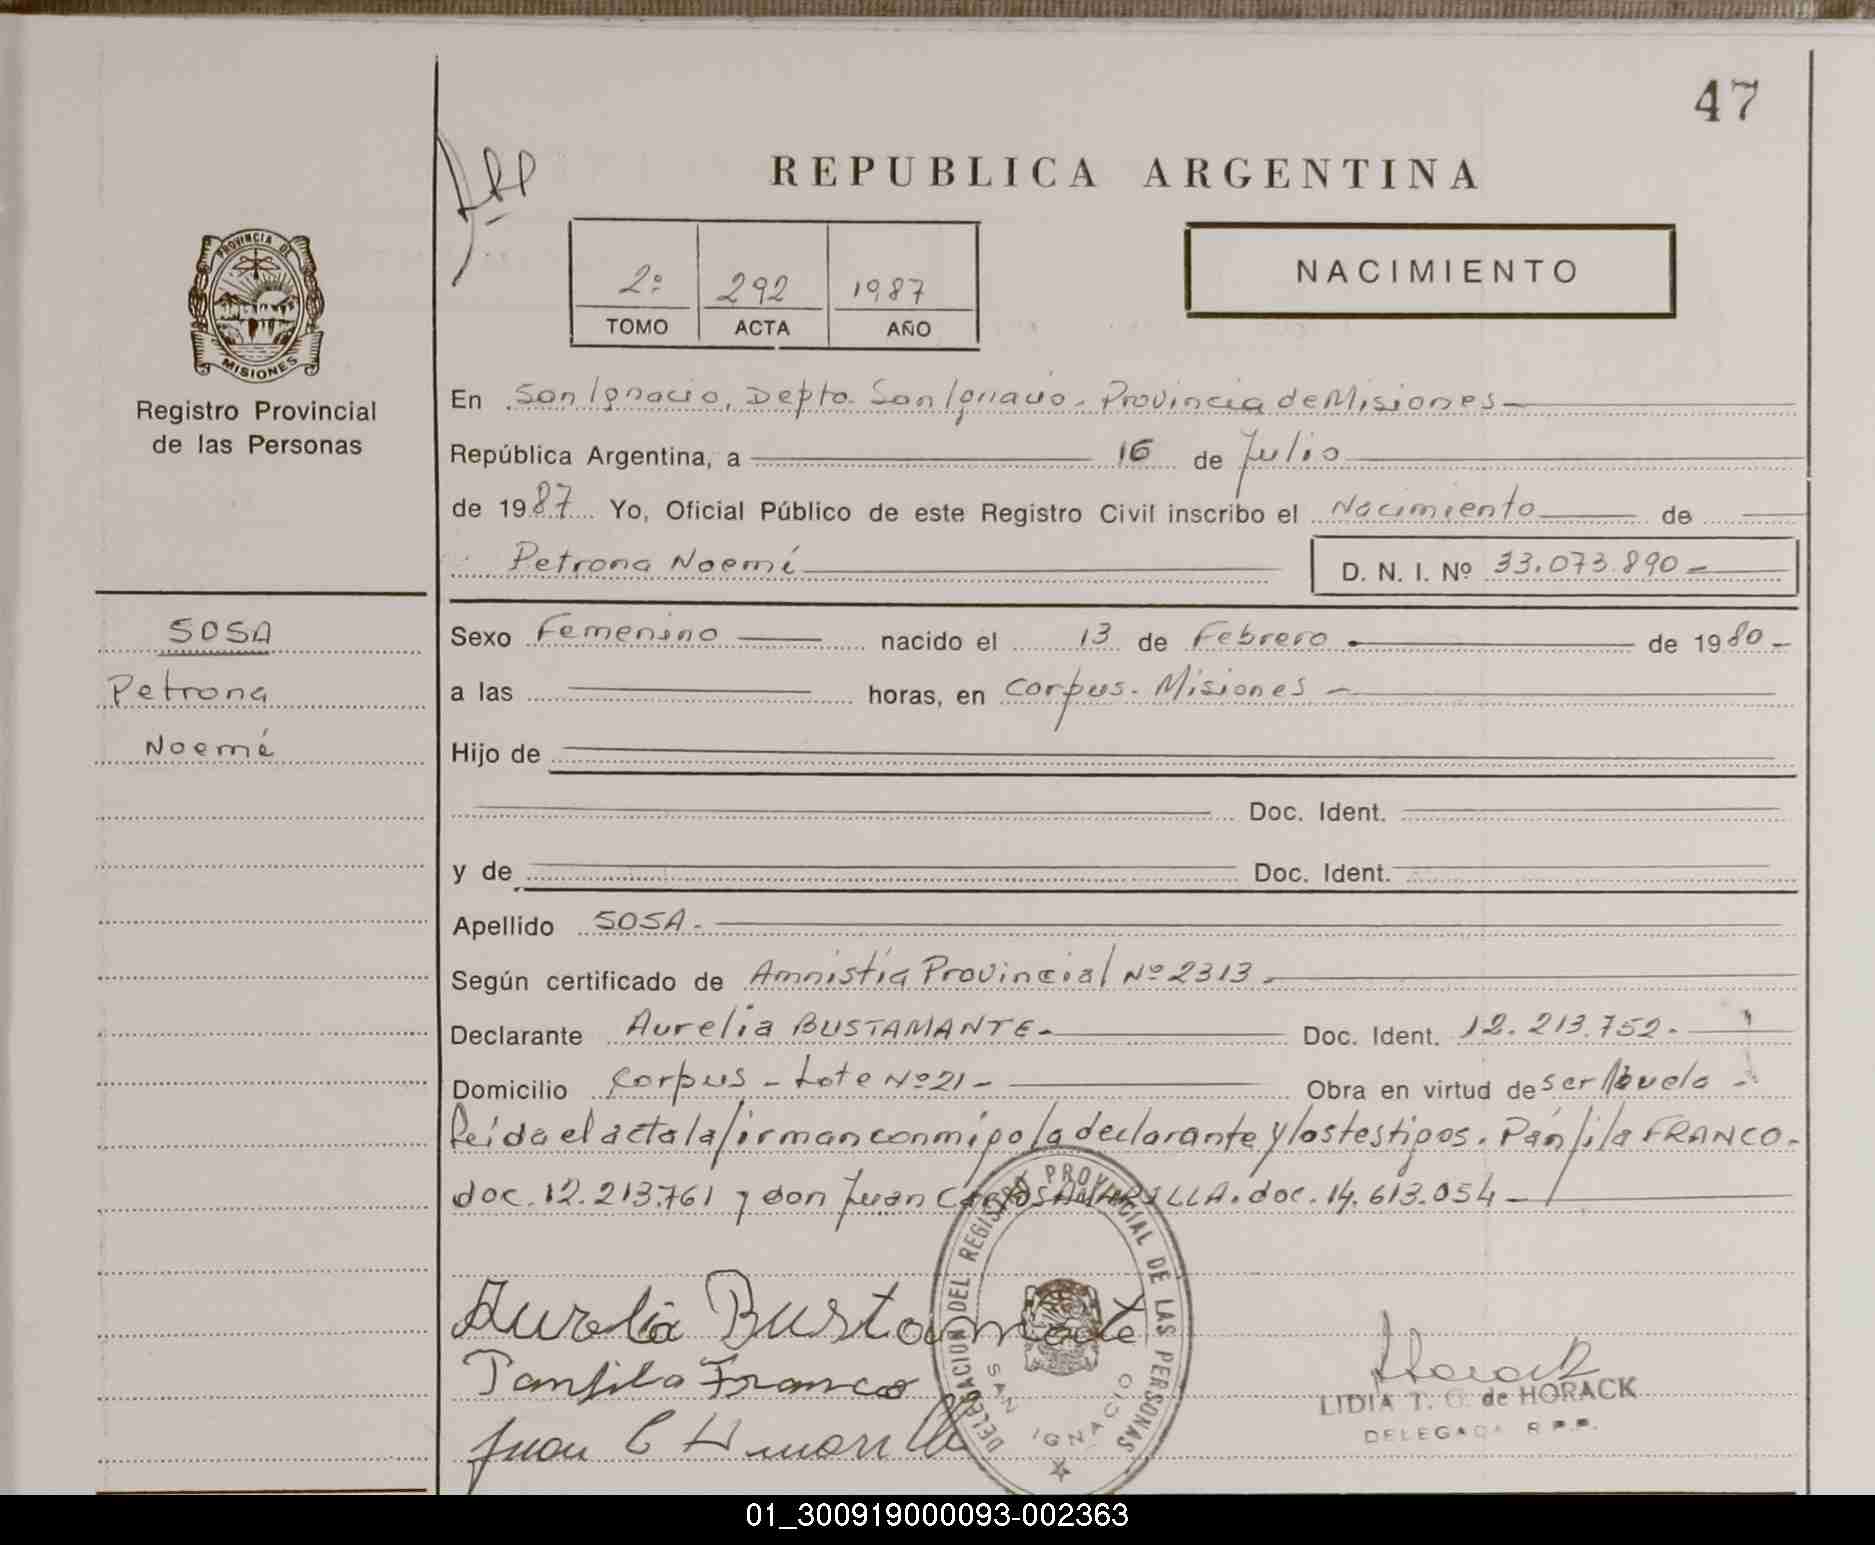 47
REPUBLICA ARGENTINA
2º 292 1987
TOMO ACTA AÑO
NACIMIENTO
PROVINCIA DE
MISIONES
Registro Provincial
de las Personas
En San Ignacio, Depto. San Ignacio. Provincia de Misiones
República Argentina, a 16 de Julio
de 1987 Yo, Oficial Público de este Registro Civil inscribo el Nacimiento de
Petrona Noemí D. N. I. Nº 33.073.890
SOSA
Petrona
Noemí
Sexo Femenino nacido el 13 de Febrero de 1980
a las horas, en Corpus. Misiones
Hijo de
Doc. Ident.
y de Doc. Ident.
Apellido SOSA.
Según certificado de Amnistía Provincial Nº 2313
Declarante Aurelia BUSTAMANTE Doc. Ident. 12.213.752.
Domicilio Corpus - Lote Nº 21 - Obra en virtud de ser Abuela
Leída el acta la firman conmigo la declarante y los testigos. Pánfila FRANCO.
doc. 12.213.761 y don Juan Carlos AMARILLA. doc. 14.613.054
Aurelia Bustamante
Panfila Franco
Juan C Amarilla
DELEGACION DEL REGISTRO PROVINCIAL DE LAS PERSONAS
SAN IGNACIO
Horack
LIDIA T. G. de HORACK
DELEGADA R.P.P.
01_300919000093-002363